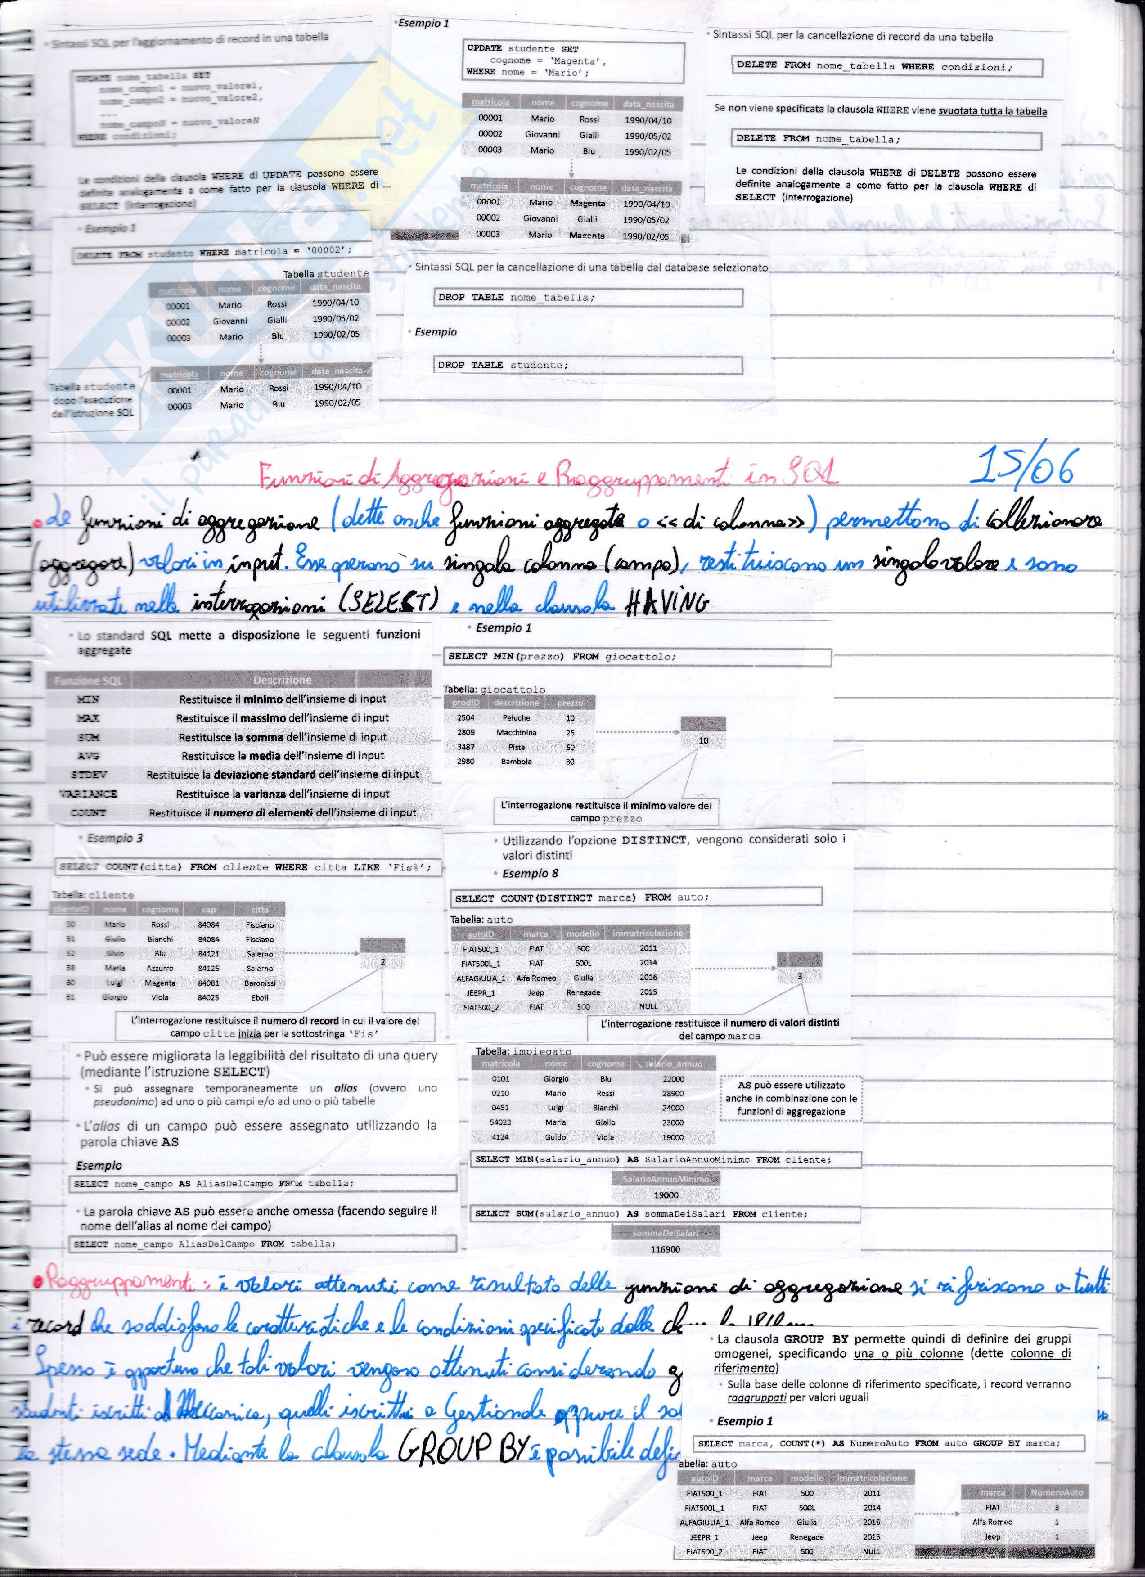 • Sintassi SQL per l'aggiornamento di record in una tabella
UPDATE nome_tabella SET
nome_campo1 = nuovo_valore1,
nome_campo2 = nuovo_valore2,
....
nome_campoN = nuovo_valoreN
WHERE condizioni;
Le condizioni della clausola WHERE di UPDATE possono essere
definite analogamente a come fatto per la clausola WHERE di
SELECT (interrogazione)
• Esempio 1
UPDATE studente SET
cognome = 'Magenta',
WHERE nome = 'Mario';
matricola nome cognome data_nascita
00001 Mario Rossi 1990/04/10
00002 Giovanni Gialli 1990/05/02
00003 Mario Blu 1990/02/05
matricola nome cognome data_nascita
00001 Mario Magenta 1990/04/10
00002 Giovanni Gialli 1990/05/02
00003 Mario Magenta 1990/02/05
• Sintassi SQL per la cancellazione di record da una tabella
DELETE FROM nome_tabella WHERE condizioni;
Se non viene specificata la clausola WHERE viene svuotata tutta la tabella
DELETE FROM nome_tabella;
Le condizioni della clausola WHERE di DELETE possono essere
definite analogamente a come fatto per la clausola WHERE di
SELECT (interrogazione)
• Esempio 1
DELETE FROM studente WHERE matricola = '00002';
Tabella studente
matricola nome cognome data_nascita
00001 Mario Rossi 1990/04/10
00002 Giovanni Gialli 1990/05/02
00003 Mario Blu 1990/02/05
Tabella studente
dopo l'esecuzione
dell'istruzione SQL
matricola nome cognome data_nascita
00001 Mario Rossi 1990/04/10
00003 Mario Blu 1990/02/05
• Sintassi SQL per la cancellazione di una tabella dal database selezionato
DROP TABLE nome_tabella;
• Esempio
DROP TABLE studente;
Funzioni di Aggregazioni e Raggruppamenti in SQL 15/06
• Le funzioni di aggregazione (dette anche funzioni aggregate o << di colonna>>) permettono di collezionare
(aggregare) valori in input. Esse operano su singola colonna (campo), restituiscono un singolo valore e sono
utilizzate nelle interrogazioni (SELECT) e nella clausola HAVING
• Lo standard SQL mette a disposizione le seguenti funzioni
aggregate
Funzione SQL Descrizione
MIN Restituisce il minimo dell'insieme di input
MAX Restituisce il massimo dell'insieme di input
SUM Restituisce la somma dell'insieme di input
AVG Restituisce la media dell'insieme di input
STDEV Restituisce la deviazione standard dell'insieme di input
VARIANCE Restituisce la varianza dell'insieme di input
COUNT Restituisce il numero di elementi dell'insieme di input
• Esempio 1
SELECT MIN(prezzo) FROM giocattolo;
Tabella: giocattolo
prodID descrizione prezzo
2504 Peluche 10
2809 Macchinina 25
3487 Pista 50
2980 Bambola 30
10
L'interrogazione restituisce il minimo valore del
campo prezzo
• Esempio 3
SELECT COUNT(citta) FROM cliente WHERE citta LIKE 'Fis%';
Tabella: cliente
clienteID nome cognome cap citta
50 Mario Rossi 84084 Fisciano
51 Giulio Bianchi 84084 Fisciano
52 Silvio Blu 84121 Salerno
Maria Azzurro 84125 Salerno
Luigi Magenta 84081 Baronissi
Giorgio Viola 84025 Eboli
2
L'interrogazione restituisce il numero di record in cui il valore del
campo citta inizia per la sottostringa 'Fis'
• Utilizzando l'opzione DISTINCT, vengono considerati solo i
valori distinti
• Esempio 8
SELECT COUNT(DISTINCT marca) FROM auto;
Tabella: auto
autoID marca modello immatricolazione
FIAT500_1 FIAT 500 2011
FIAT500L_1 FIAT 500L 2014
ALFAGIULIA_1 Alfa Romeo Giulia 2016
JEEPR_1 Jeep Renegade 2015
FIAT500_2 FIAT 500 NULL
3
L'interrogazione restituisce il numero di valori distinti
del campo marca
• Può essere migliorata la leggibilità del risultato di una query
(mediante l'istruzione SELECT)
• Si può assegnare temporaneamente un alias (ovvero uno
pseudonimo) ad uno o più campi e/o ad uno o più tabelle
• L'alias di un campo può essere assegnato utilizzando la
parola chiave AS
Esempio
SELECT nome_campo AS AliasDelCampo FROM tabella;
• La parola chiave AS può essere anche omessa (facendo seguire il
nome dell'alias al nome del campo)
SELECT nome_campo AliasDelCampo FROM tabella;
Tabella: impiegato
matricola nome cognome salario_annuo
0101 Giorgio Blu 22000
0210 Mario Rossi 28900
0451 Luigi Bianchi 24000
54023 Maria Giallo 23000
4124 Guido Viola 19000
AS può essere utilizzato
anche in combinazione con le
funzioni di aggregazione
SELECT MIN(salario_annuo) AS SalarioAnnuoMinimo FROM cliente;
SalarioAnnuoMinimo
19000
SELECT SUM(salario_annuo) AS sommaDeiSalari FROM cliente;
sommaDeiSalari
116900
• Raggruppamenti: i valori ottenuti come risultato delle funzioni di aggregazione si riferiscono a tutti
i record che soddisfano le caratteristiche e le condizioni specificate dalla
Spesso è opportuno che tali valori vengano ottenuti considerando
studenti iscritti a Meccanica, quelli iscritti a Gestionale oppure il
la stessa sede. Mediante la clausola GROUP BY è possibile
• La clausola GROUP BY permette quindi di definire dei gruppi
omogenei, specificando una o più colonne (dette colonne di
riferimento)
• Sulla base delle colonne di riferimento specificate, i record verranno
raggruppati per valori uguali
• Esempio 1
SELECT marca, COUNT(*) AS NumeroAuto FROM auto GROUP BY marca;
abella: auto
autoID marca modello immatricolazione
FIAT500_1 FIAT 500 2011
FIAT500L_1 FIAT 500L 2014
ALFAGIULIA_1 Alfa Romeo Giulia 2016
JEEPR_1 Jeep Renegade 2015
FIAT500_2 FIAT 500 NULL
marca NumeroAuto
FIAT 3
Alfa Romeo 1
Jeep 1